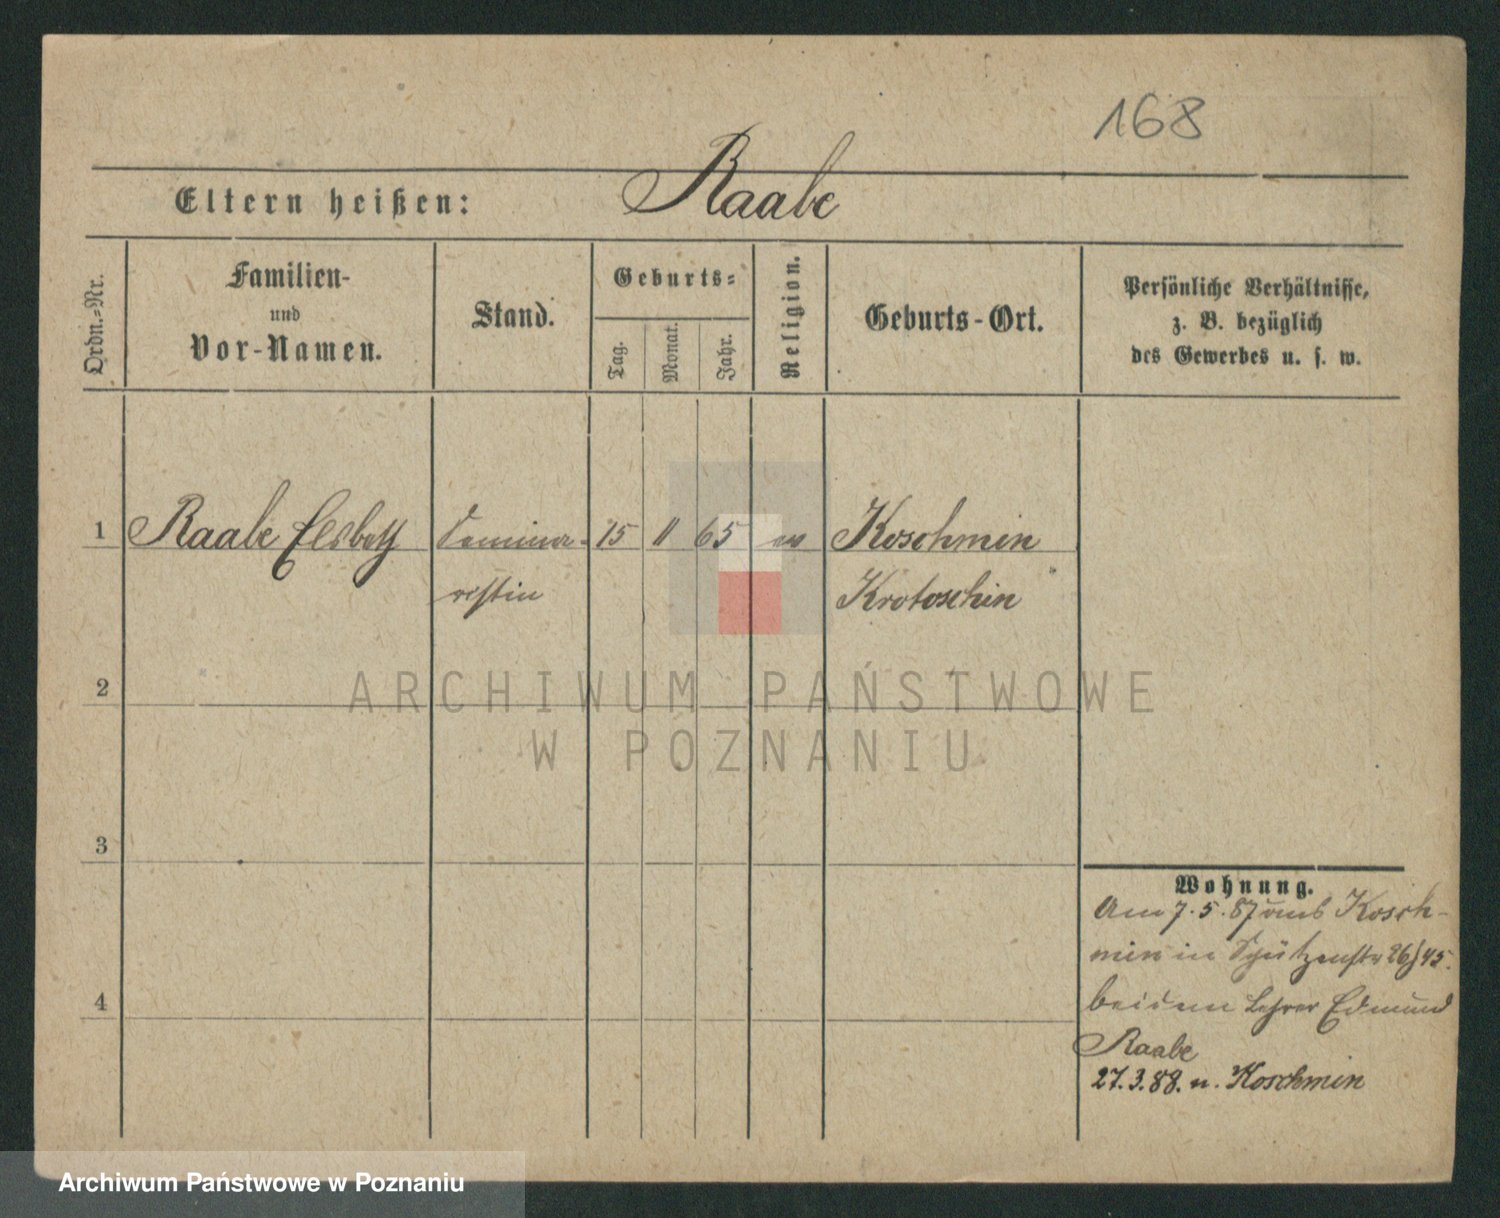 168
Eltern heißen: Raabe
Ordn.-Nr.
Familien-
und
Vor-Namen.
Stand.
Geburts-
Tag.
Monat.
Jahr.
Religion.
Geburts-Ort.
Persönliche Verhältnisse,
z. B. bezüglich
des Gewerbes u. s. w.
1 Raabe Elsbeth Semina- 15 11 65 ev Koschmin
ristin Krotoschin
2
ARCHIWUM PAŃSTWOWE
W POZNANIU
3
4
Wohnung.
Am 7.5.87 aus Kosch-
min in Schützenstr 26/45.
bei dem Lehrer Edmund
Raabe
27.3.88. n. Koschmin
Archiwum Państwowe w Poznaniu